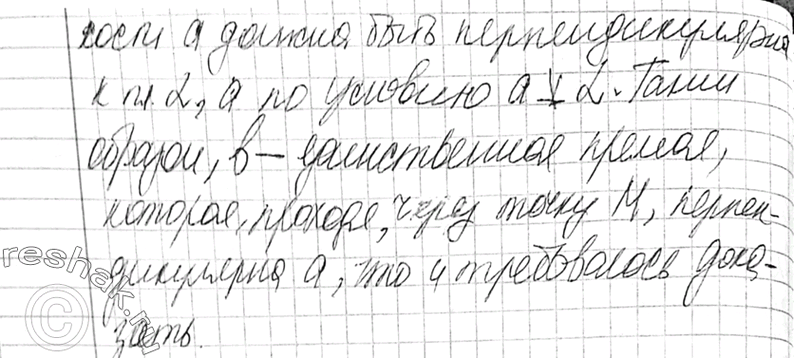 кости a должна быть перпендикулярна
к пл. α, а по условию a ⊥̸ α. Таким
образом, b — единственная прямая,
которая, проходя, через точку M, перпен-
дикулярна a, что и требовалось дока-
зать.
© reshak.ru